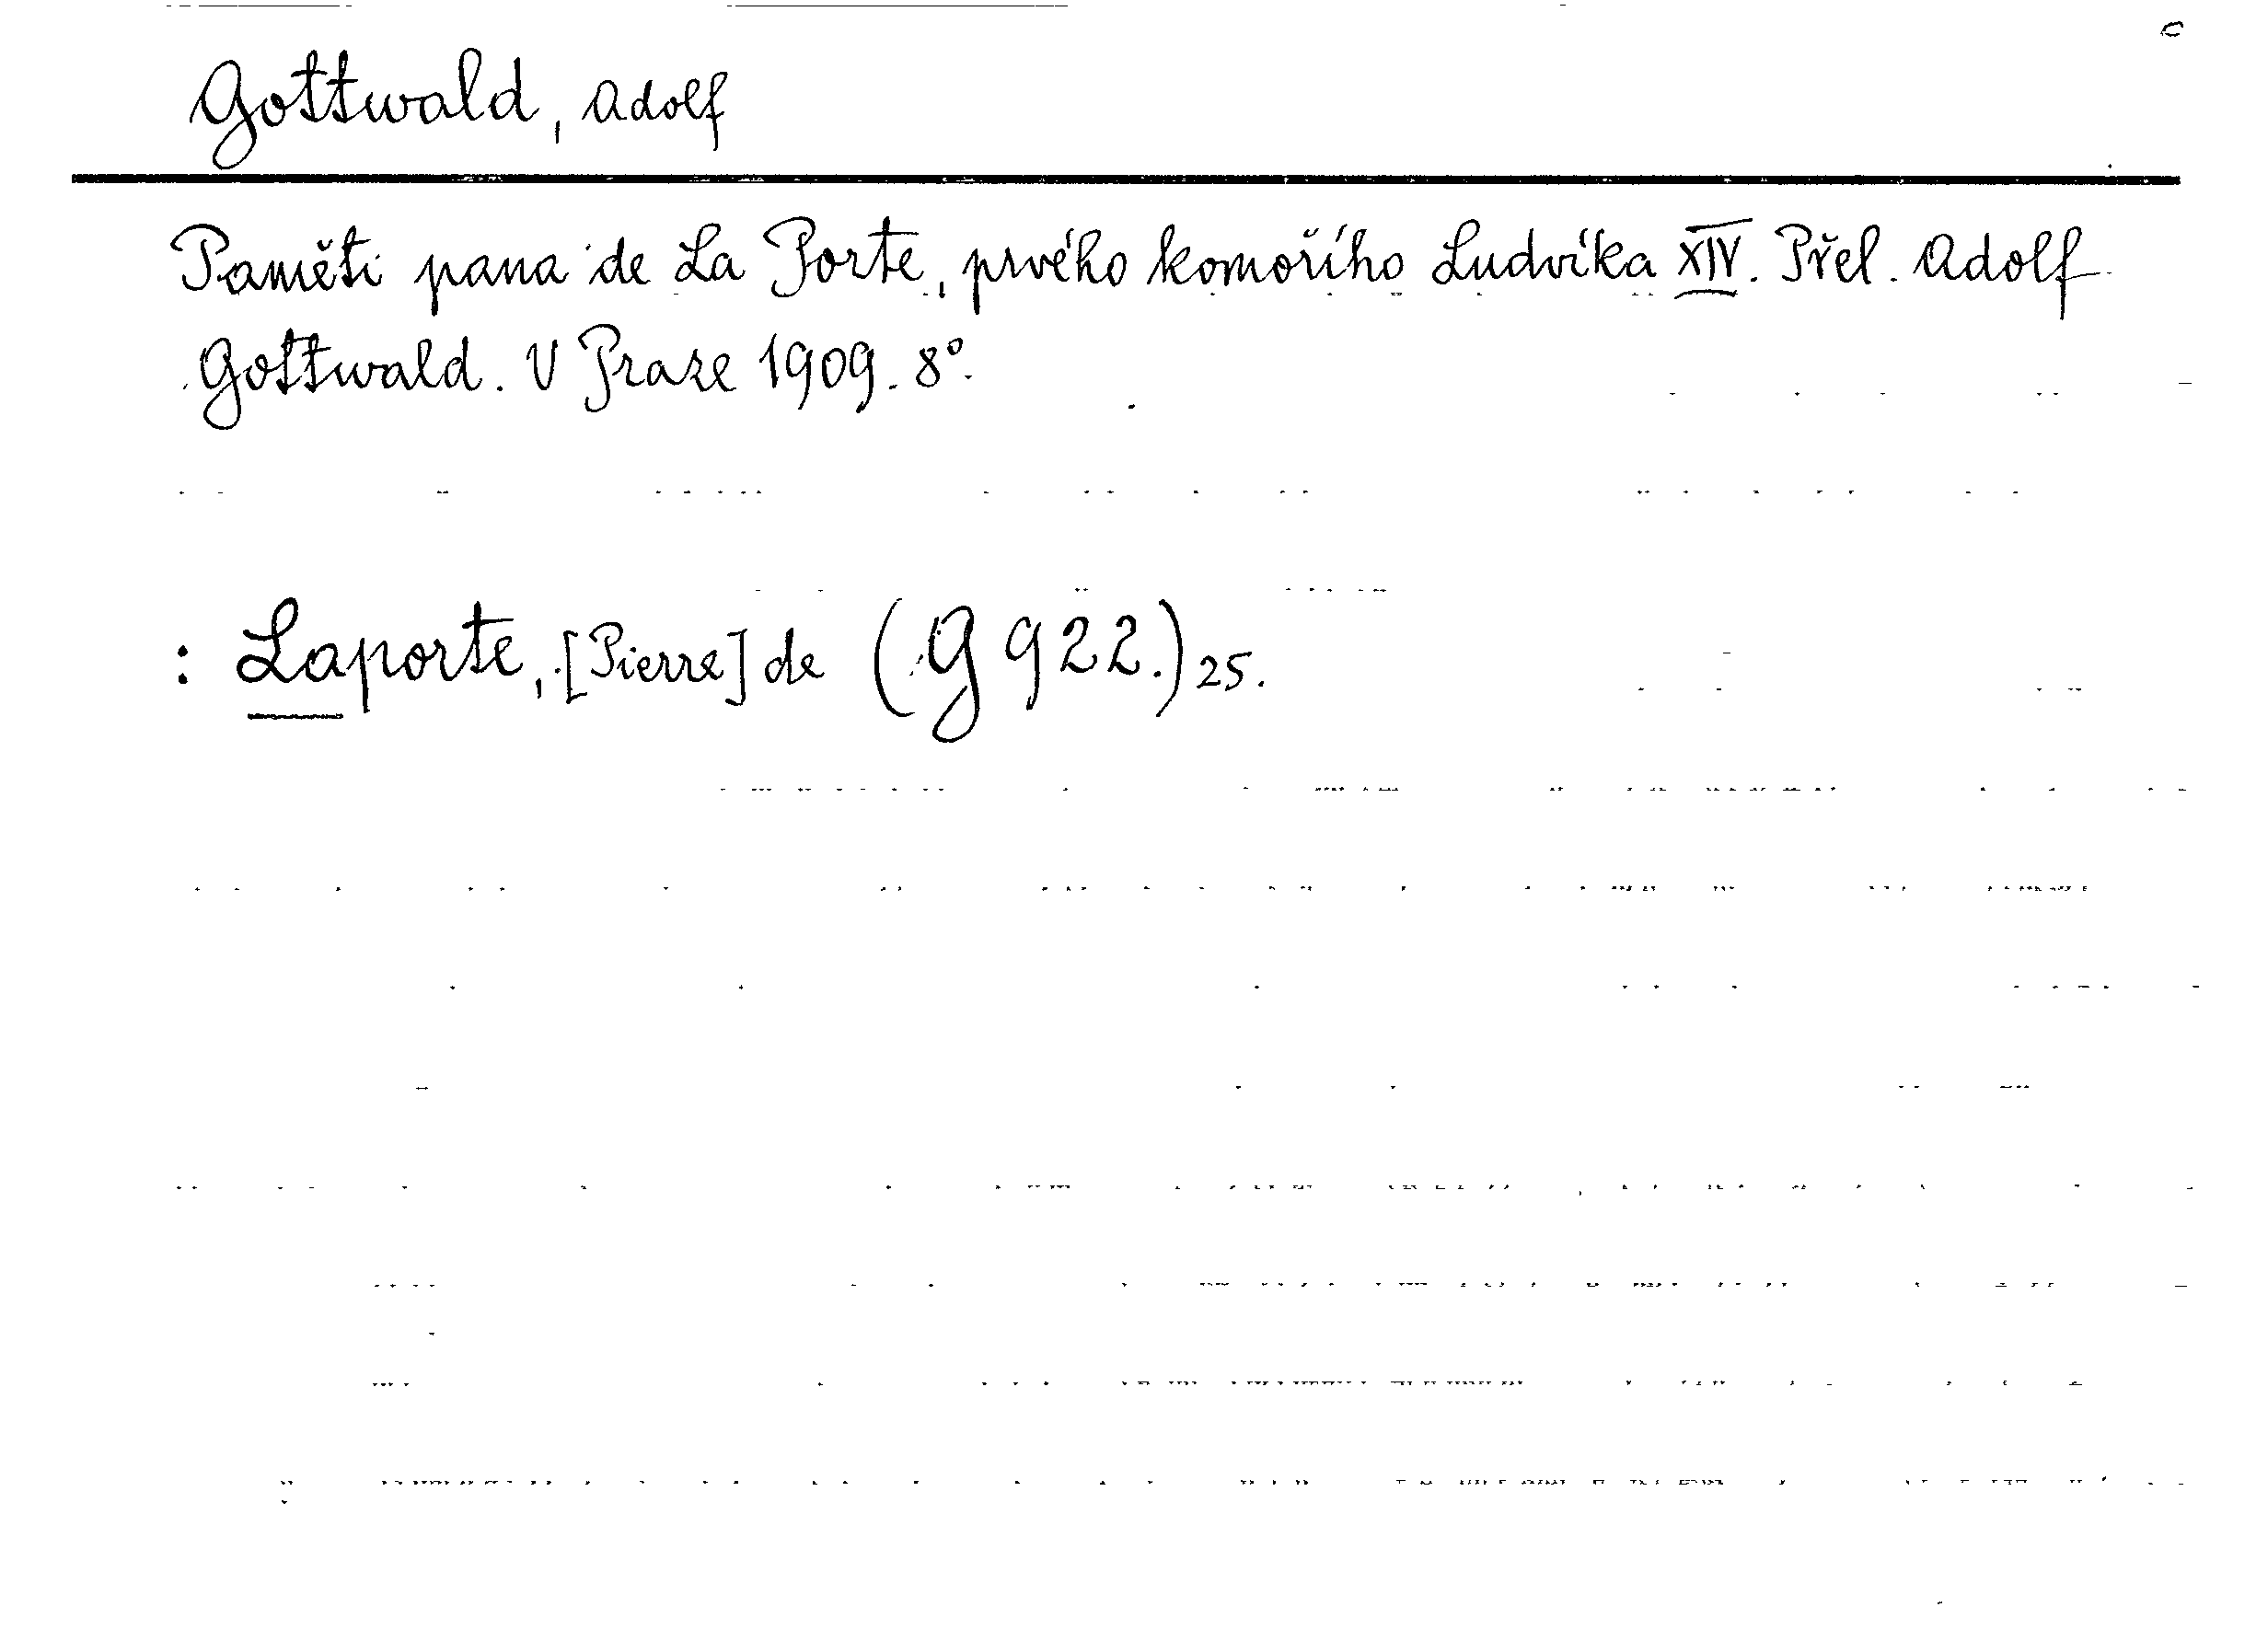 Gottwald, Adolf
Paměti pana de La Porte, prvého komořího Ludvíka XIV. Přel. Adolf
Gottwald. V Praze 1909. 8°.
: Laporte, [Pierre] de (G 922.) 25.